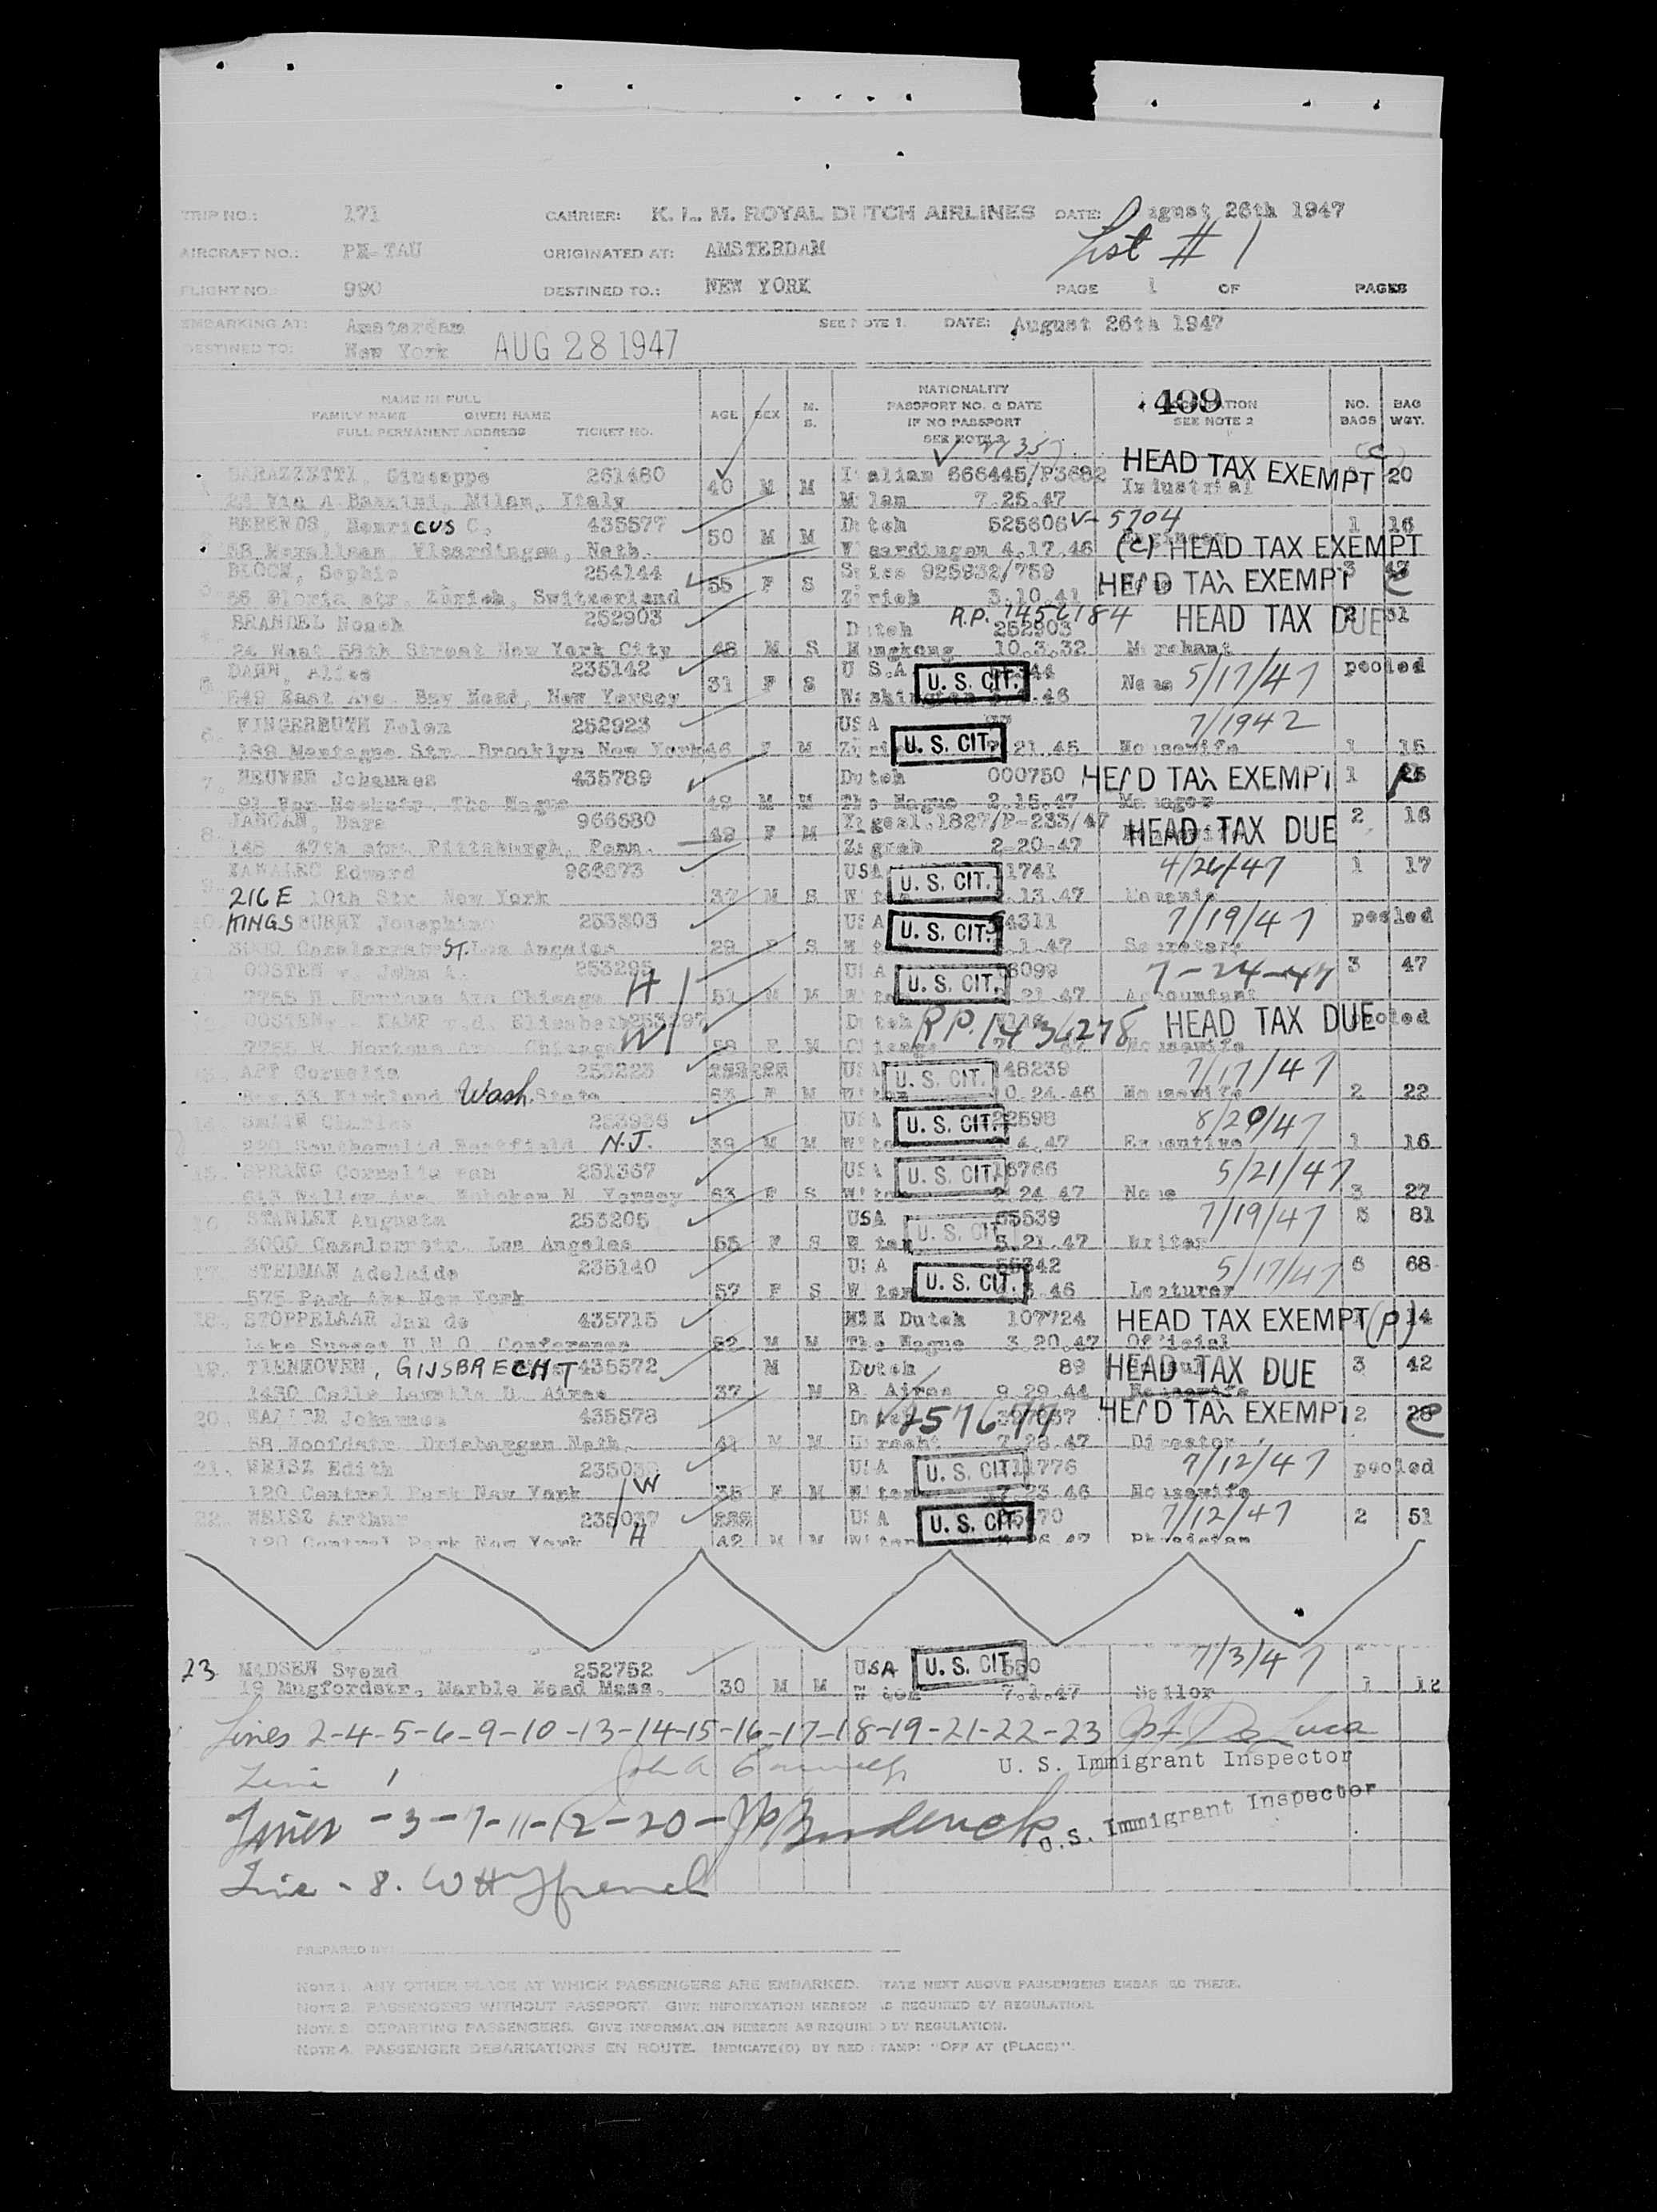 TRIP NO.: 171 CARRIER: K. L. M. ROYAL DUTCH AIRLINES DATE: August 26th 1947
List # 1
AIRCRAFT NO.: PH-TAU ORIGINATED AT: AMSTERDAM
FLIGHT NO. 990 DESTINED TO.: NEW YORK PAGE 1 OF PAGES
EMBARKING AT: Amsterdam SEE NOTE 1. DATE: August 26th 1947
DESTINED TO: New York AUG 28 1947
NAME IN FULL
FAMILY NAME GIVEN NAME
FULL PERMANENT ADDRESS TICKET NO.
AGE SEX M. S.
NATIONALITY
PASSPORT NO. & DATE
IF NO PASSPORT
SEE NOTE 2
409
OCCUPATION
SEE NOTE 2
NO. BAGS BAG WGT.
BARAZZETTI, Giuseppe 261480 Italian 666445/P3682 HEAD TAX EXEMPT 20
24 Via A Bazzini, Milan, Italy 40 M M Milan 7.25.47 Industrial
BERENDS, HenriCUS C. 435577 Dutch 525606 V-5704 1 16
Vlaardingen, Neth. 50 M M Vlaardingen 4.17.46 Engineer (C) HEAD TAX EXEMPT
BLOCH, Sophie 254144 Swiss 925932/759 HEAD TAX EXEMPT 3
56 Gloria str, Zürich, Switzerland 55 F S Zürich 3.10.41
BRANDEL Noach 252903 Dutch 252903 R.P. 1452184 HEAD TAX DUE 31
24 West 58th Street New York City 48 M S Hongkong 10.3.32 Merchant
DAHN, Alice 235142 U.S.A. U. S. CIT. 5/17/47 pooled
649 East Ave. Bay Head, New Yersey 31 F S Washington .46 None
6. FINGERHUTH Helen 252923 USA U. S. CIT. 7/1942
189 Montague Str. Brooklyn New York 46 F M 21.45 Housewife 1 15
7. HEUVER Johannes 435789 Dutch 000750 HEAD TAX EXEMPT 1
91 Van Hoekstr. The Hague 49 M M The Hague 2.15.47 Manager
8. JANCAN, Bara 966680 Yugosl.1827/P-233/47 HEAD TAX DUE 2 16
145 47th str. Pittsburgh, Penn. 49 F M Zagreb 2-20-47
Edward 966673 USA U. S. CIT. 1741 4/26/47 1 17
216 E 10th Str New York 37 M S 13.47
10. KINGSBURRY Josephine 253203 USA U. S. CIT. 4311 7/19/47 pooled
ST. Los Angeles 29 F S .1.47 Secretary
OOSTEN v. John A. USA U. S. CIT. 6099 7-24-47 3 47
7755 H. Hortens Ave Chicago H 51 M M 21.47 Accountant
OOSTEN v. KAMP v.d. Elisabeth Dutch R.P. 1434278 HEAD TAX DUE pooled
W 58 F M Chicago Housewife
APT Cornelia 253223 USA U. S. CIT. 48239 7/17/47
Box 33 Kirkland Wash. State 63 F M 10.24.46 Housewife 2 22
Charles 253936 USA U. S. CIT. 22598 8/20/47
N.J. 39 M M .4.47 Executive 1 16
15. SPRANG Cornelia van 251367 USA U. S. CIT. 16766 5/21/47
613 Willow Ave. Hoboken N. Yersey 63 F S .24.47 None 3 27
STANLEY Augusta 253205 USA U. S. CIT. 55539 7/19/47 5 81
Los Angeles 55 F S 5.21.47 Writer
17. STEDMAN Adelaide 235140 USA U. S. CIT. 5/17/47 6 68
575 Park Ave New York 57 F S .46 Lecturer
18. STOPPELAAR Jan de 435715 Dutch 107724 HEAD TAX EXEMPT (P) 14
Lake Sucses U.N.O. Conference 52 M M The Hague 3.20.47 Official
19. TIENHOVEN, GIJSBRECHT 435572 M Dutch 89 HEAD TAX DUE 3 42
1450 Calle Lavalle B. Aires 37 M B. Aires 9.29.44
20. Johannes 435578 Dutch HEAD TAX EXEMPT 2
68 Hoofdstr. Driebergen Neth. 41 M M Utrecht 7.23.47 Director
21. WEISZ Edith USA U. S. CIT. 11776 7/12/47 pooled
120 Central Park New York W 35 F M 7.23.46 Housewife
22. WEISZ Arthur 235037 USA U. S. CIT. 7/12/47 2 51
120 Central Park New York H 42 M M Physician
23. MADSEN Svend 252752 USA U. S. CIT. 7/3/47
19 Mugfordstr, Marble Head Mass. 30 M M 7.1.47 Sailor 1 12
Lines 2-4-5-6-9-10-13-14-15-16-17-18-19-21-22-23 De Luca
U. S. Immigrant Inspector
Line 1 John A
Lines -3-7-11-12-20- Broderick
U.S. Immigrant Inspector
Line - 8. W H ffrench
PREPARED BY
NOTE 1. ANY OTHER PLACE AT WHICH PASSENGERS ARE EMBARKED. STATE NEXT ABOVE PASSENGERS EMBARKED THERE.
NOTE 2. PASSENGERS WITHOUT PASSPORT. GIVE INFORMATION HEREON AS REQUIRED BY REGULATION.
NOTE 3. DEPARTING PASSENGERS. GIVE INFORMATION HEREON AS REQUIRED BY REGULATION.
NOTE 4. PASSENGER DEBARKATIONS EN ROUTE. INDICATE(D) BY RED STAMP: "OFF AT (PLACE)".